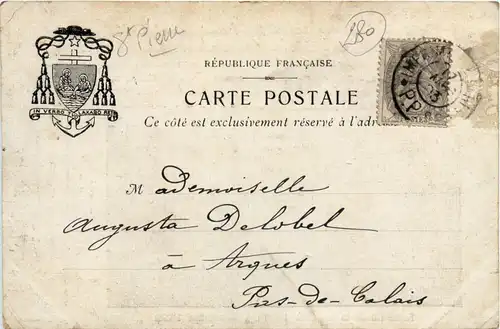 St Pierre
180
RÉPUBLIQUE FRANÇAISE
CARTE POSTALE
Ce côté est exclusivement réservé à l'adre
IN VERBO LAXABO RETE
Mademoiselle
Augusta Delobel
à Arques
Pas-de-Calais